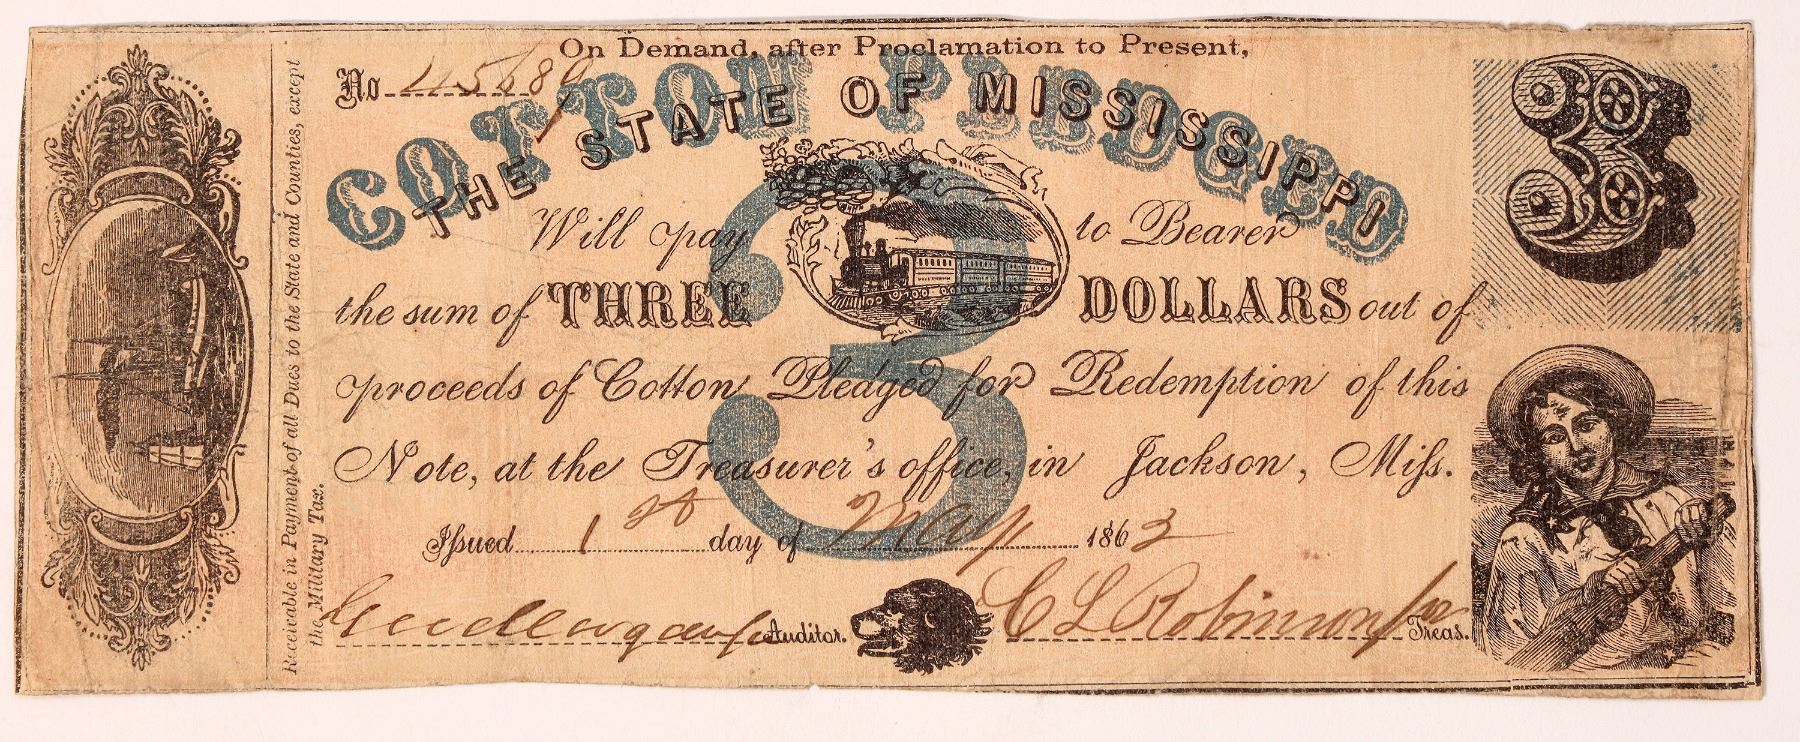 On Demand, after Proclamation to Present,
No 45689
COTTON PLEDGED
THE STATE OF MISSISSIPPI
3
Will pay to Bearer
the sum of THREE DOLLARS out of
proceeds of Cotton Pledged for Redemption of this
Note, at the Treasurer's office, in Jackson, Miſs.
Iſsued 1st day of May 1863
Auditor. C L Robinson Treas.
3
Receivable in Payment of all Dues to the State and Counties, except
the Military Tax.